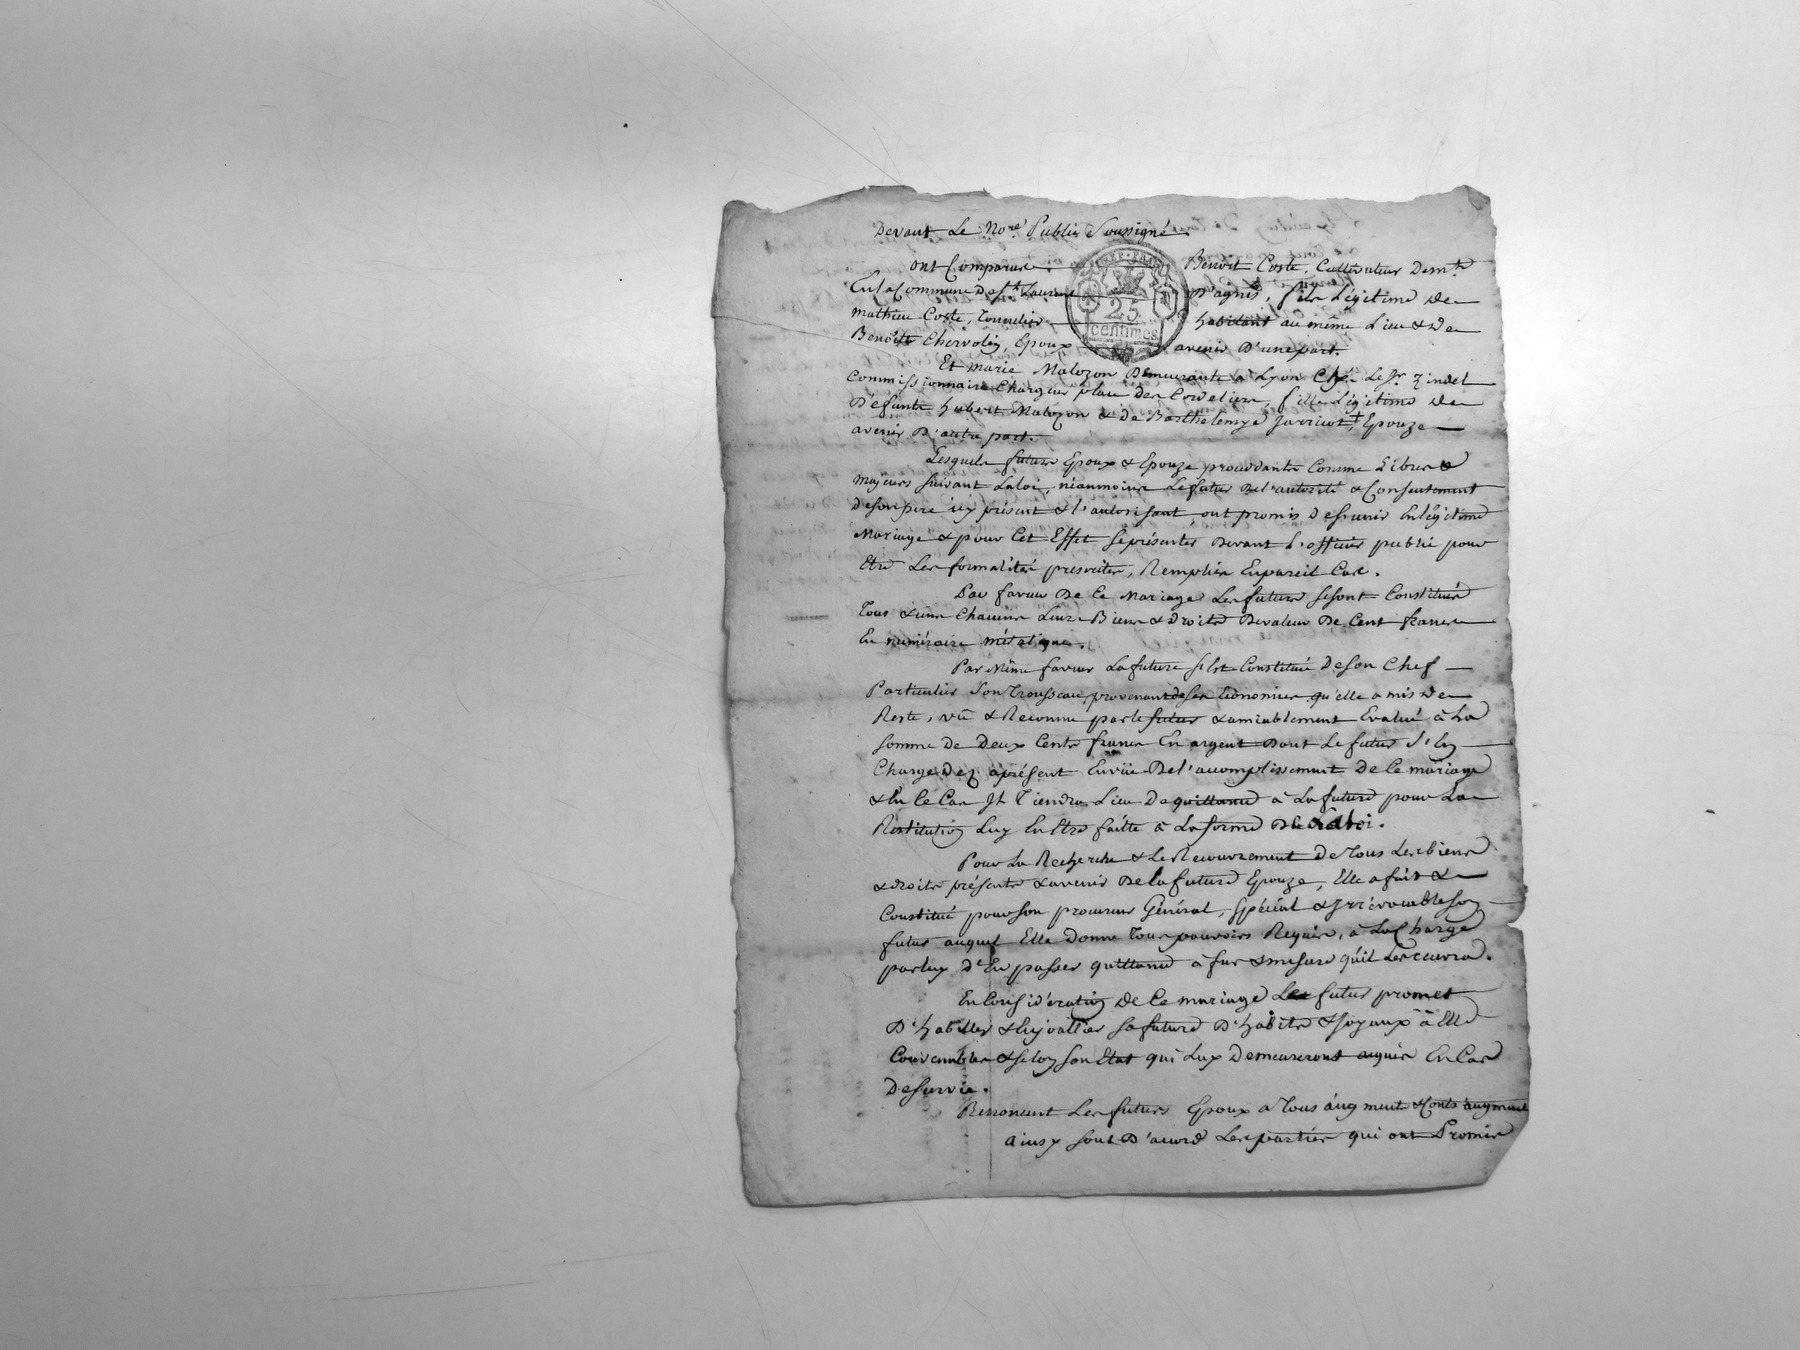 Devant Le No.re Public Soussigné
ont Comparu Benoit Coste, Cultivateur Dem.t
En la Commune De S.t Laurent D'agny, fils Légitime De
mathieu Coste, Tonnelier habitant au même Lieu & De
Benoîte Chervolin, Epoux avenir D'une part.
Et marie Malozon Demeurante à Lyon Chéz Le S.r Zindel
Commissionnaire Chargeur place des Cordeliers, fille Légitime De
Défunts hubert Malozon & De Barthelemye Jarricot, Epouze
avenir D'autre part.
Lesquels futurs Epoux & Epouze procédants Comme Libres &
Majeurs suivant La loi, néanmoins Le futur De l'autorité & Consentement
De son père icy présent & l'autorisant, ont promis De s'unir En légitime
Mariage & pour Cet Effet se présenter Devant L'officier public pour
Etre Les formalités prescrites, Remplies En pareil Cas.
Par faveur De Ce Mariage Les futurs se sont Constitués
Tous & uns Chacuns Leurs Biens & droits De valeur De Cent francs
En numéraire métalique.
Par Même faveur La future s'est Constitué De son Chef
Particulier Son Trousseau, provenant de ses Economies qu'elle a mis De
Reste, vû & Reconnu par le futur & amiablement Evalué à La
somme De Deux Cents francs En argent Dont Le futur S'en
Charge Dez àprésent En vüe De l'accomplissement De Ce mariage
& En Ce Cas Il Tiendra Lieu De quittance à La future pour La
Restitution Luy En Etre faitte à La forme De La Loi.
Pour La Recherche & Le Recouvrement De Tous Les biens
& droits présents & avenir De La future Epouze, Elle a fait &
Constitué pour son procureur Général, Spécial & Irrévocable son
futur auquel Elle Donne Tous pouvoirs Requis, à La Charge
par Luy d'En passer quittance à fur & mesure qu'il Les recevra.
En Considération De Ce mariage Le futur promet
D'habiller & Enjoallier sa future D'habits & Joyaux à Elle
Convenables & selon son Etat qui Luy Demeureront acquis En Cas
De survie.
Renoncent Les futurs Epoux à Tous augments & Contr'augments
Ainsy sont D'accord Les parties qui ont Promis
REP. FRA.
25
centimes